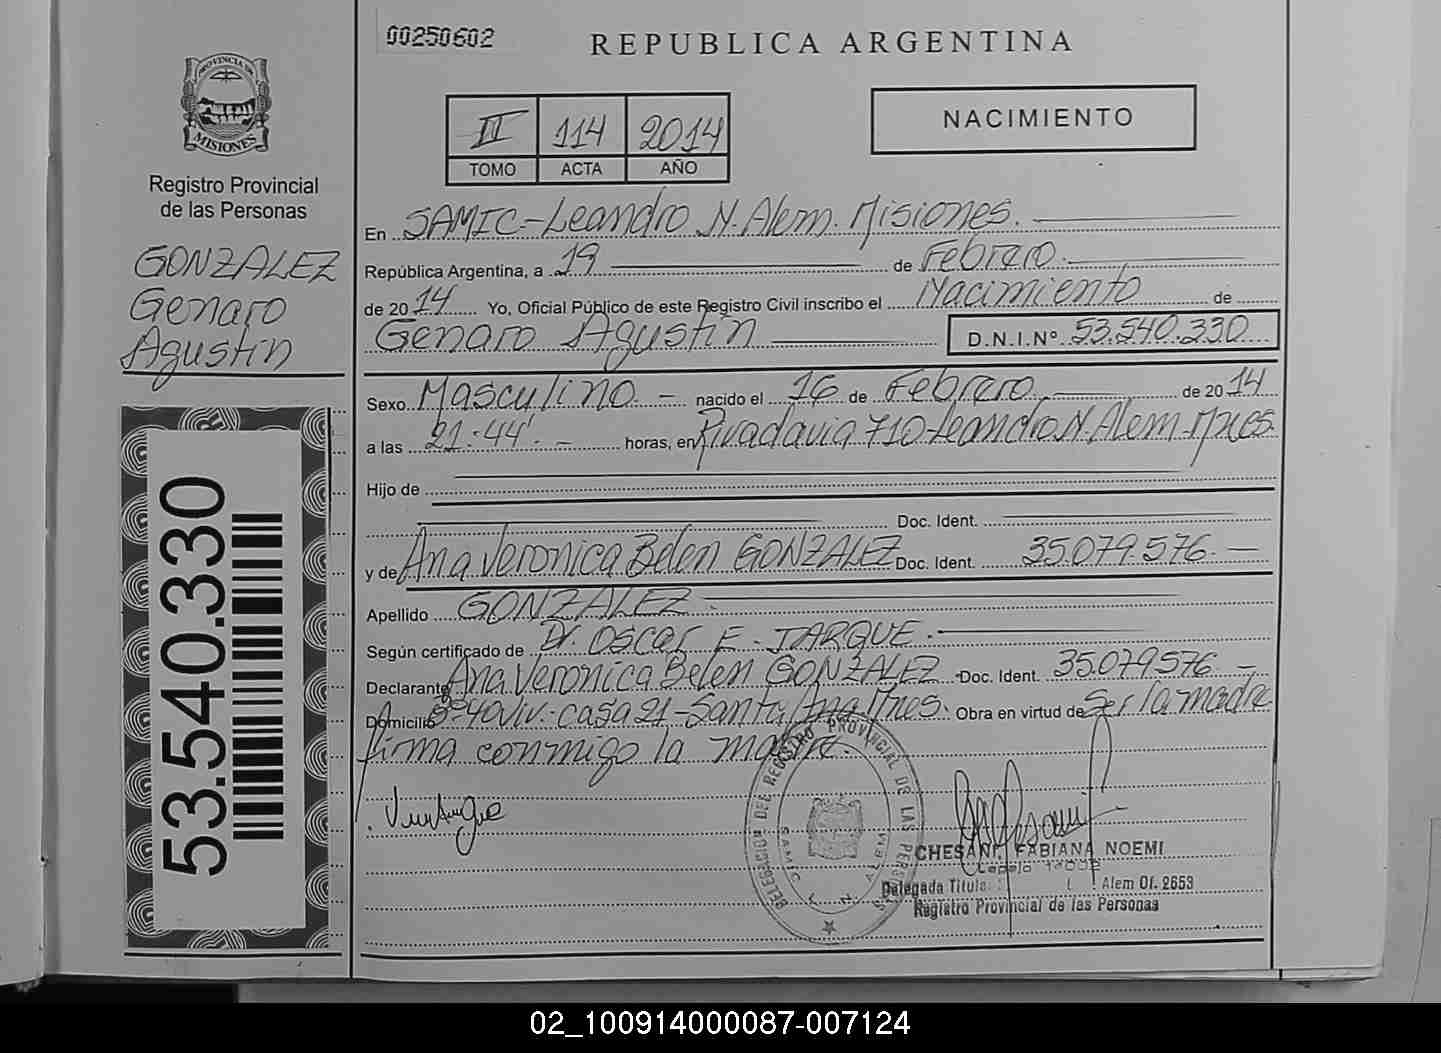 00250602
REPUBLICA ARGENTINA
PROVINCIA DE
MISIONES
Registro Provincial
de las Personas
III 114 2014
TOMO ACTA AÑO
NACIMIENTO
GONZALEZ
Genaro
Agustin
53.540.330
En SAMIC-Leandro N. Alem. Misiones.
República Argentina, a 19 de Febrero.
de 2014 Yo, Oficial Público de este Registro Civil inscribo el Nacimiento de
Genaro Agustin D.N.I.Nº 53.540.330
Sexo Masculino. - nacido el 16 de Febrero de 2014
a las 21:44'. - horas, en Rivadavia 710-Leandro N. Alem-Mnes.
Hijo de
Doc. Ident.
y de Ana Veronica Belen GONZALEZ Doc. Ident. 35.079.576. -
Apellido GONZALEZ.
Según certificado de Dr. Oscar E. JARQUE.
Declarante Ana Veronica Belen GONZALEZ Doc. Ident. 35.079.576. -
Domicilio Bº 40 Viv.-casa 21-Santa Ana Mnes. Obra en virtud de ser la madre
firma conmigo la madre.
DELEGACION DEL REGISTRO PROVINCIAL DE LAS PERSONAS
SAMIC L. N. ALEM
CHESANI, FABIANA NOEMI
Delegada Titular Alem Of. 2653
Registro Provincial de las Personas
02_100914000087-007124